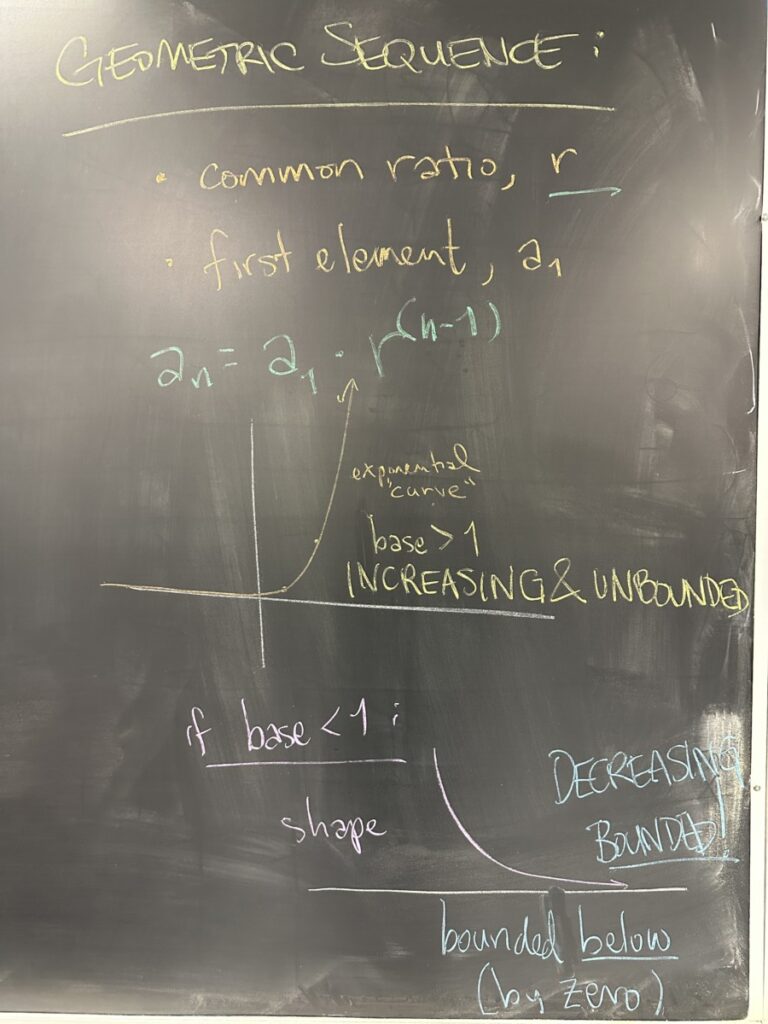 GEOMETRIC SEQUENCE:
• common ratio, r
• first element, a₁
aₙ = a₁ · r^(n-1)
exponential
"curve"
base > 1
INCREASING & UNBOUNDED
if base < 1 :
shape
DECREASING &
BOUNDED!
bounded below
(by zero)